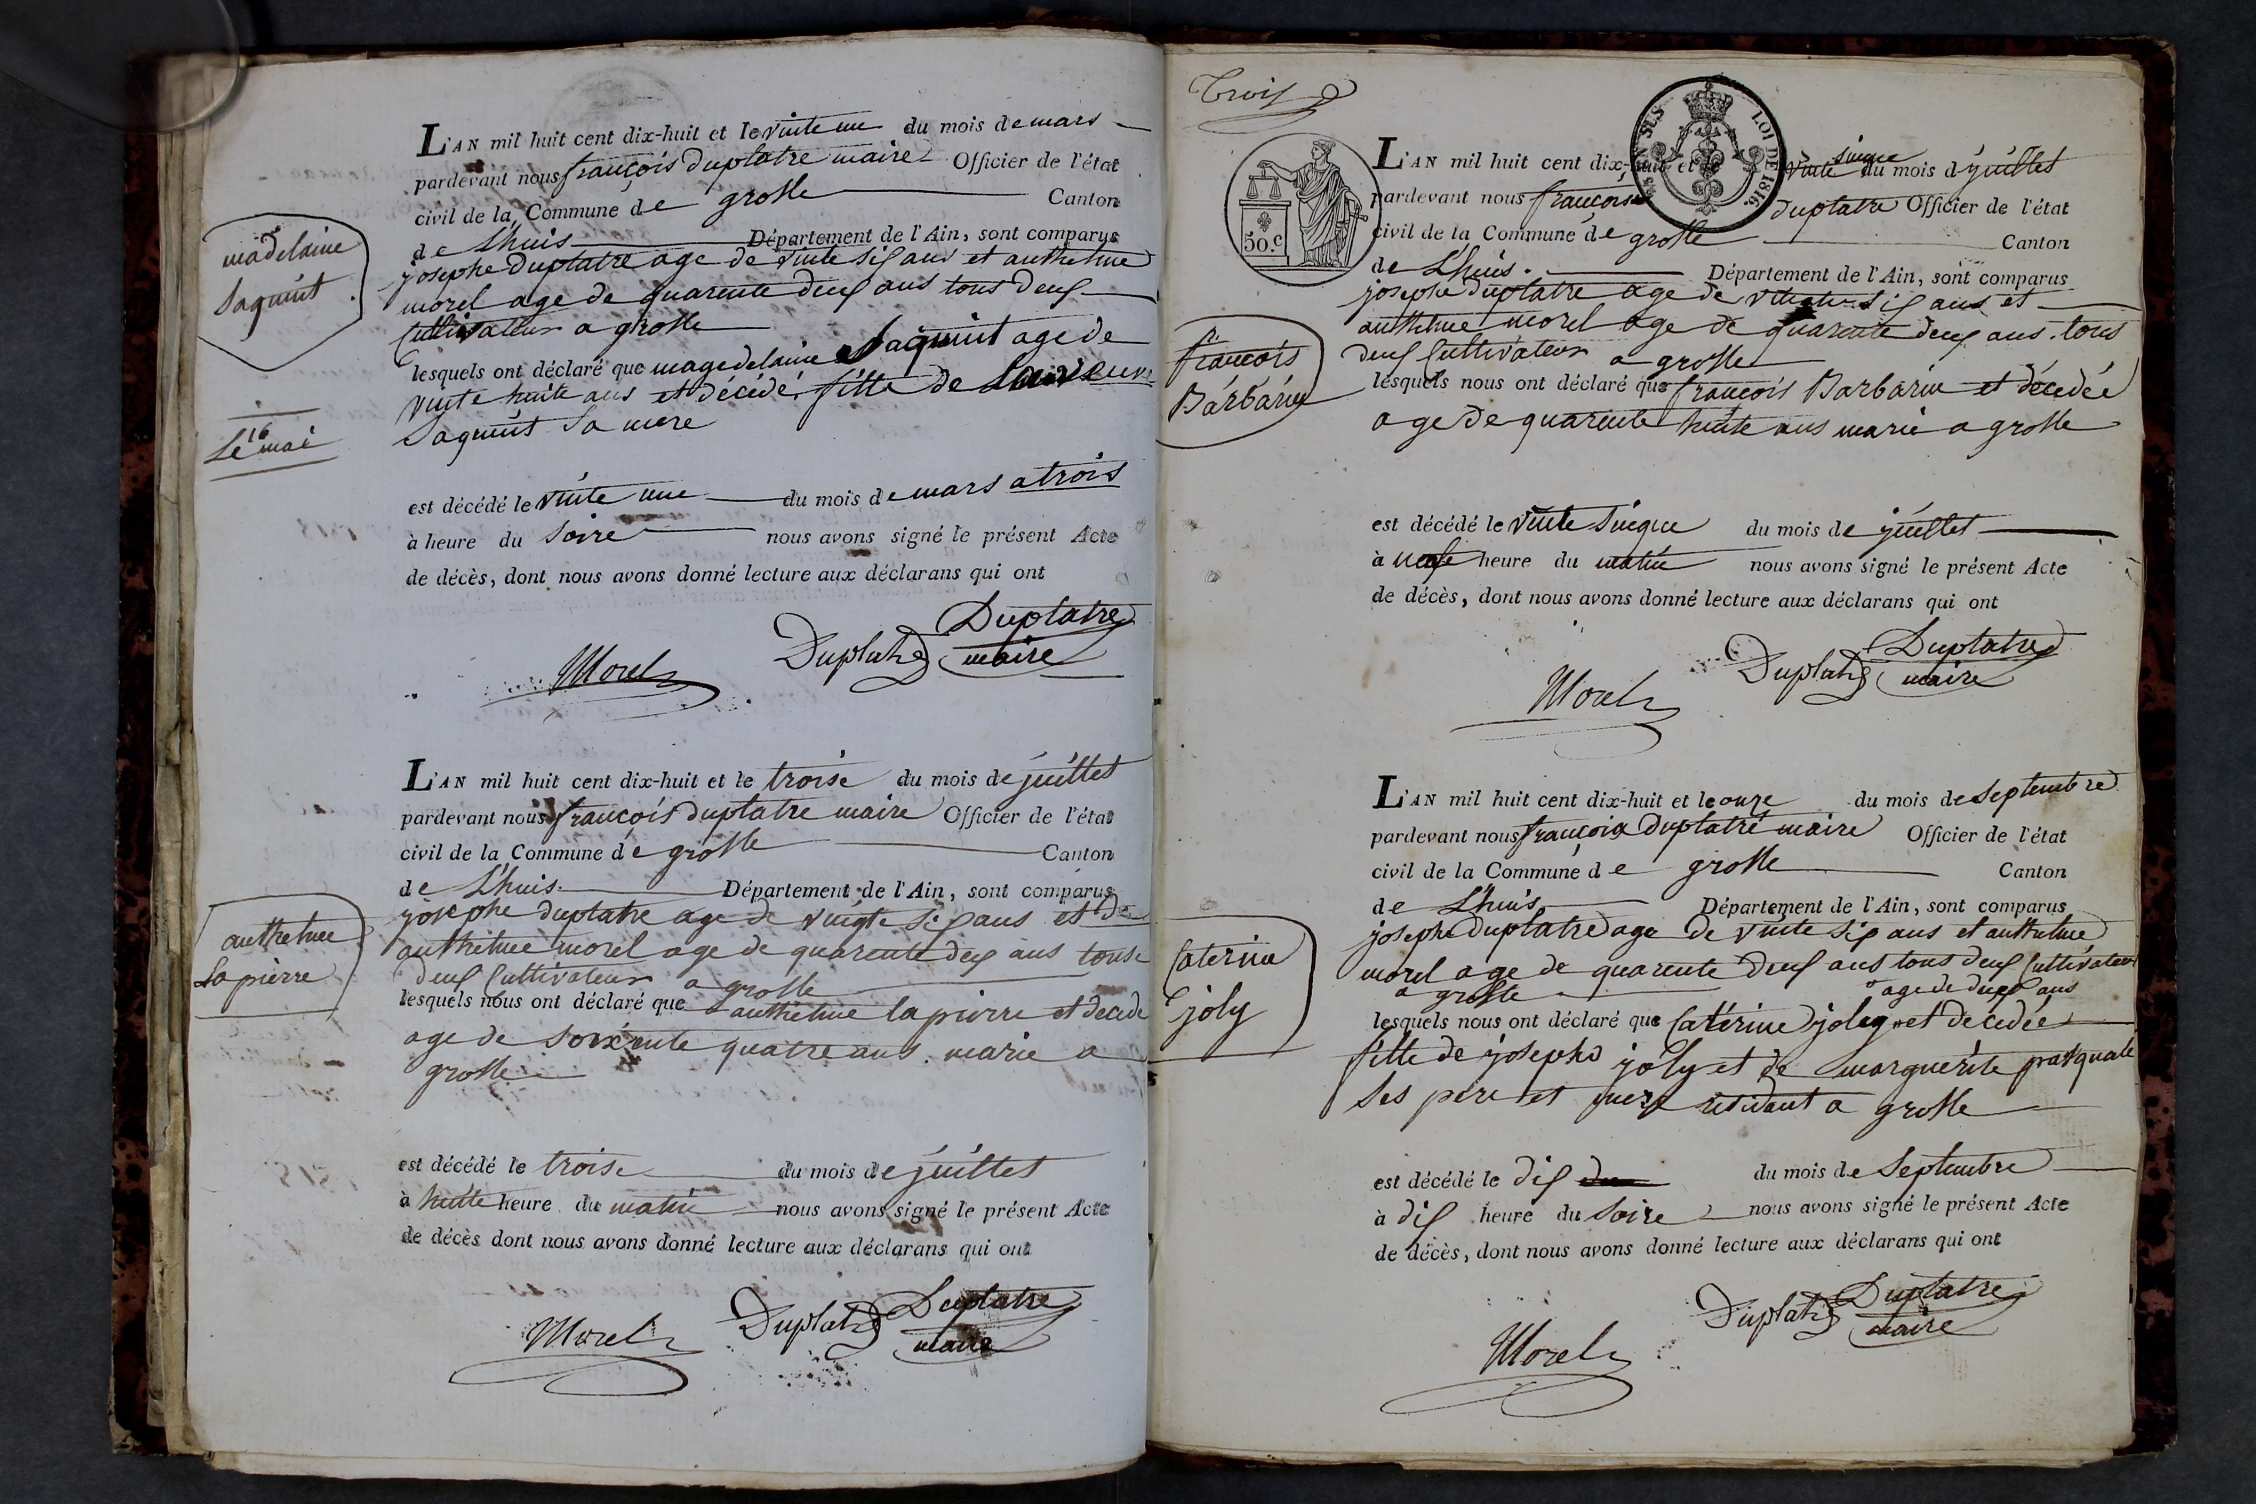 L'AN mil huit cent dix-huit et le vinte une du mois de mars
pardevant nous françois duplatre maire Officier de l'état
civil de la Commune de grosle Canton
de L'huis Département de l'Ain, sont comparus
josephe duplatre age de vinte six ans et anthelme
morel age de quarente deux ans tous deux
Cultivateur a grosle
lesquels ont déclaré que magedelaine Saguint age de
vinte huite ans et décédé fille de
Saguint Sa mere
est décédé le vinte une du mois de mars a trois
à heure du Soire nous avons signé le présent Acte
de décès, dont nous avons donné lecture aux déclarans qui ont
Duplatre
Morel Duplatre maire
madelaine
Saguint
16
Le mai
L'AN mil huit cent dix-huit et le troise du mois de juillet
pardevant nous françois duplatre maire Officier de l'état
civil de la Commune de grosle Canton
de L'huis Département de l'Ain, sont comparus
josephe duplatre age de vingte six ans et de
anthelme morel age de quarente deux ans touse
deux Cultivateur a grosle
lesquels nous ont déclaré que anthelme lapierre et decede
age de soixente quatre ans marie a
grosle
est décédé le troise du mois de juillet
à huite heure du matin nous avons signé le présent Acte
de décès dont nous avons donné lecture aux déclarans qui ont
Morel Duplatre Duplatre
maire
anthelme
Lapierre
Trois
50.c
LOI DE 1816.
L'AN mil huit cent dix-huit et le vinte sinque du mois d juillet
pardevant nous françois duplatre Officier de l'état
civil de la Commune de grosle Canton
de L'huis Département de l'Ain, sont comparus
josephe duplatre age de vingte six ans et
anthelme morel age de quarente deux ans tous
deux Cultivateur a grosle
lesquels nous ont déclaré que françois Barbarin et décedée
age de quarente huite ans marie a grosle
est décédé le vinte sinque du mois de juillet
à heure du matin nous avons signé le présent Acte
de décès, dont nous avons donné lecture aux déclarans qui ont
Duplatre
Morel Duplatre maire
françois
Barbarin
L'AN mil huit cent dix-huit et le onze du mois de Septembre
pardevant nous françois duplatre maire Officier de l'état
civil de la Commune de grosle Canton
de L'huis Département de l'Ain, sont comparus
josephe duplatre age de vinte six ans et anthelme
morel age de quarente deux ans tous deux Cultivateur
a grosle age de ans
lesquels nous ont déclaré que Caterine joly et décedée
fille de josephe joly et de marguerite
Ses pere et mere residant a grosle
est décédé le dix du mois de Septembre
à dix heure du Soire nous avons signé le présent Acte
de décès, dont nous avons donné lecture aux déclarans qui ont
Duplatre
Morel Duplatre maire
Caterine
joly